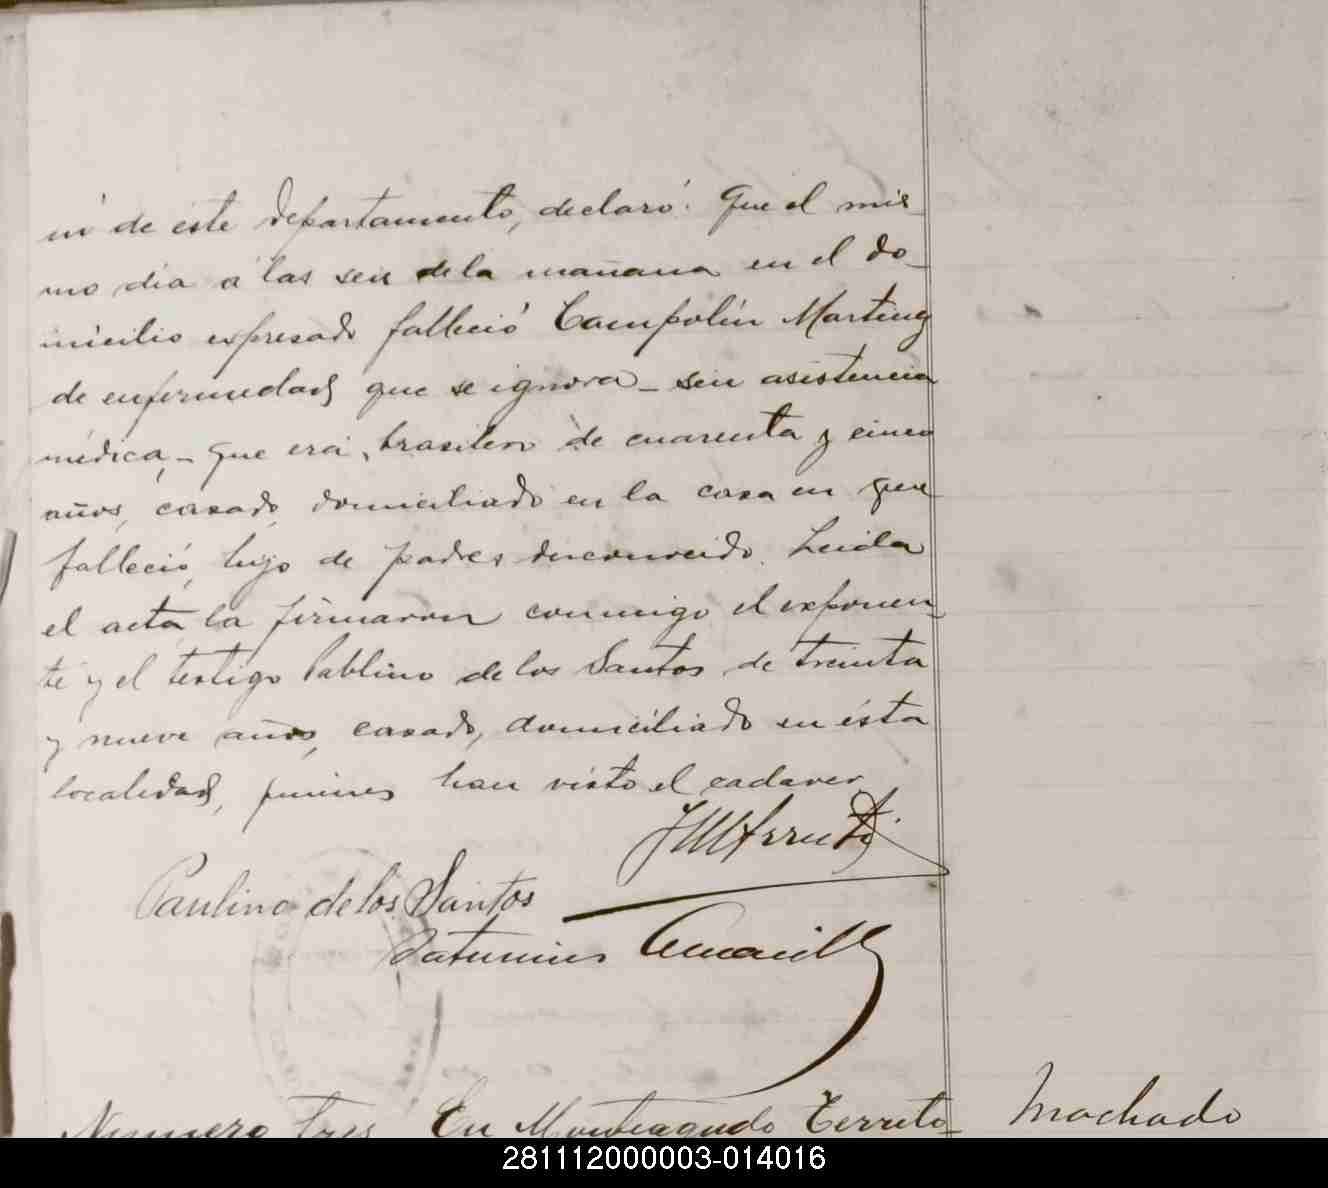 ni de este departamento, declaró: Que el mis
mo dia á las seis de la mañana en el do_
micilio expresado falleció Campolin Marting
de enfermedad que se ignora_ sin asistencia
médica,_ que era, brasilero de cuarenta y cinco
años, casado, domiciliado en la casa en que
falleció, hijo de padres desconocido. Leida
el acta la firmaron conmigo el exponen_
te y el testigo Pablino de los Santos de treinta
y nueve años, casado, domiciliado en ésta
localidad, quienes han visto el cadaver
Paulino de los Santos
Saturnino
Numero tres En Monteagudo Territo_
Machado
281112000003-014016